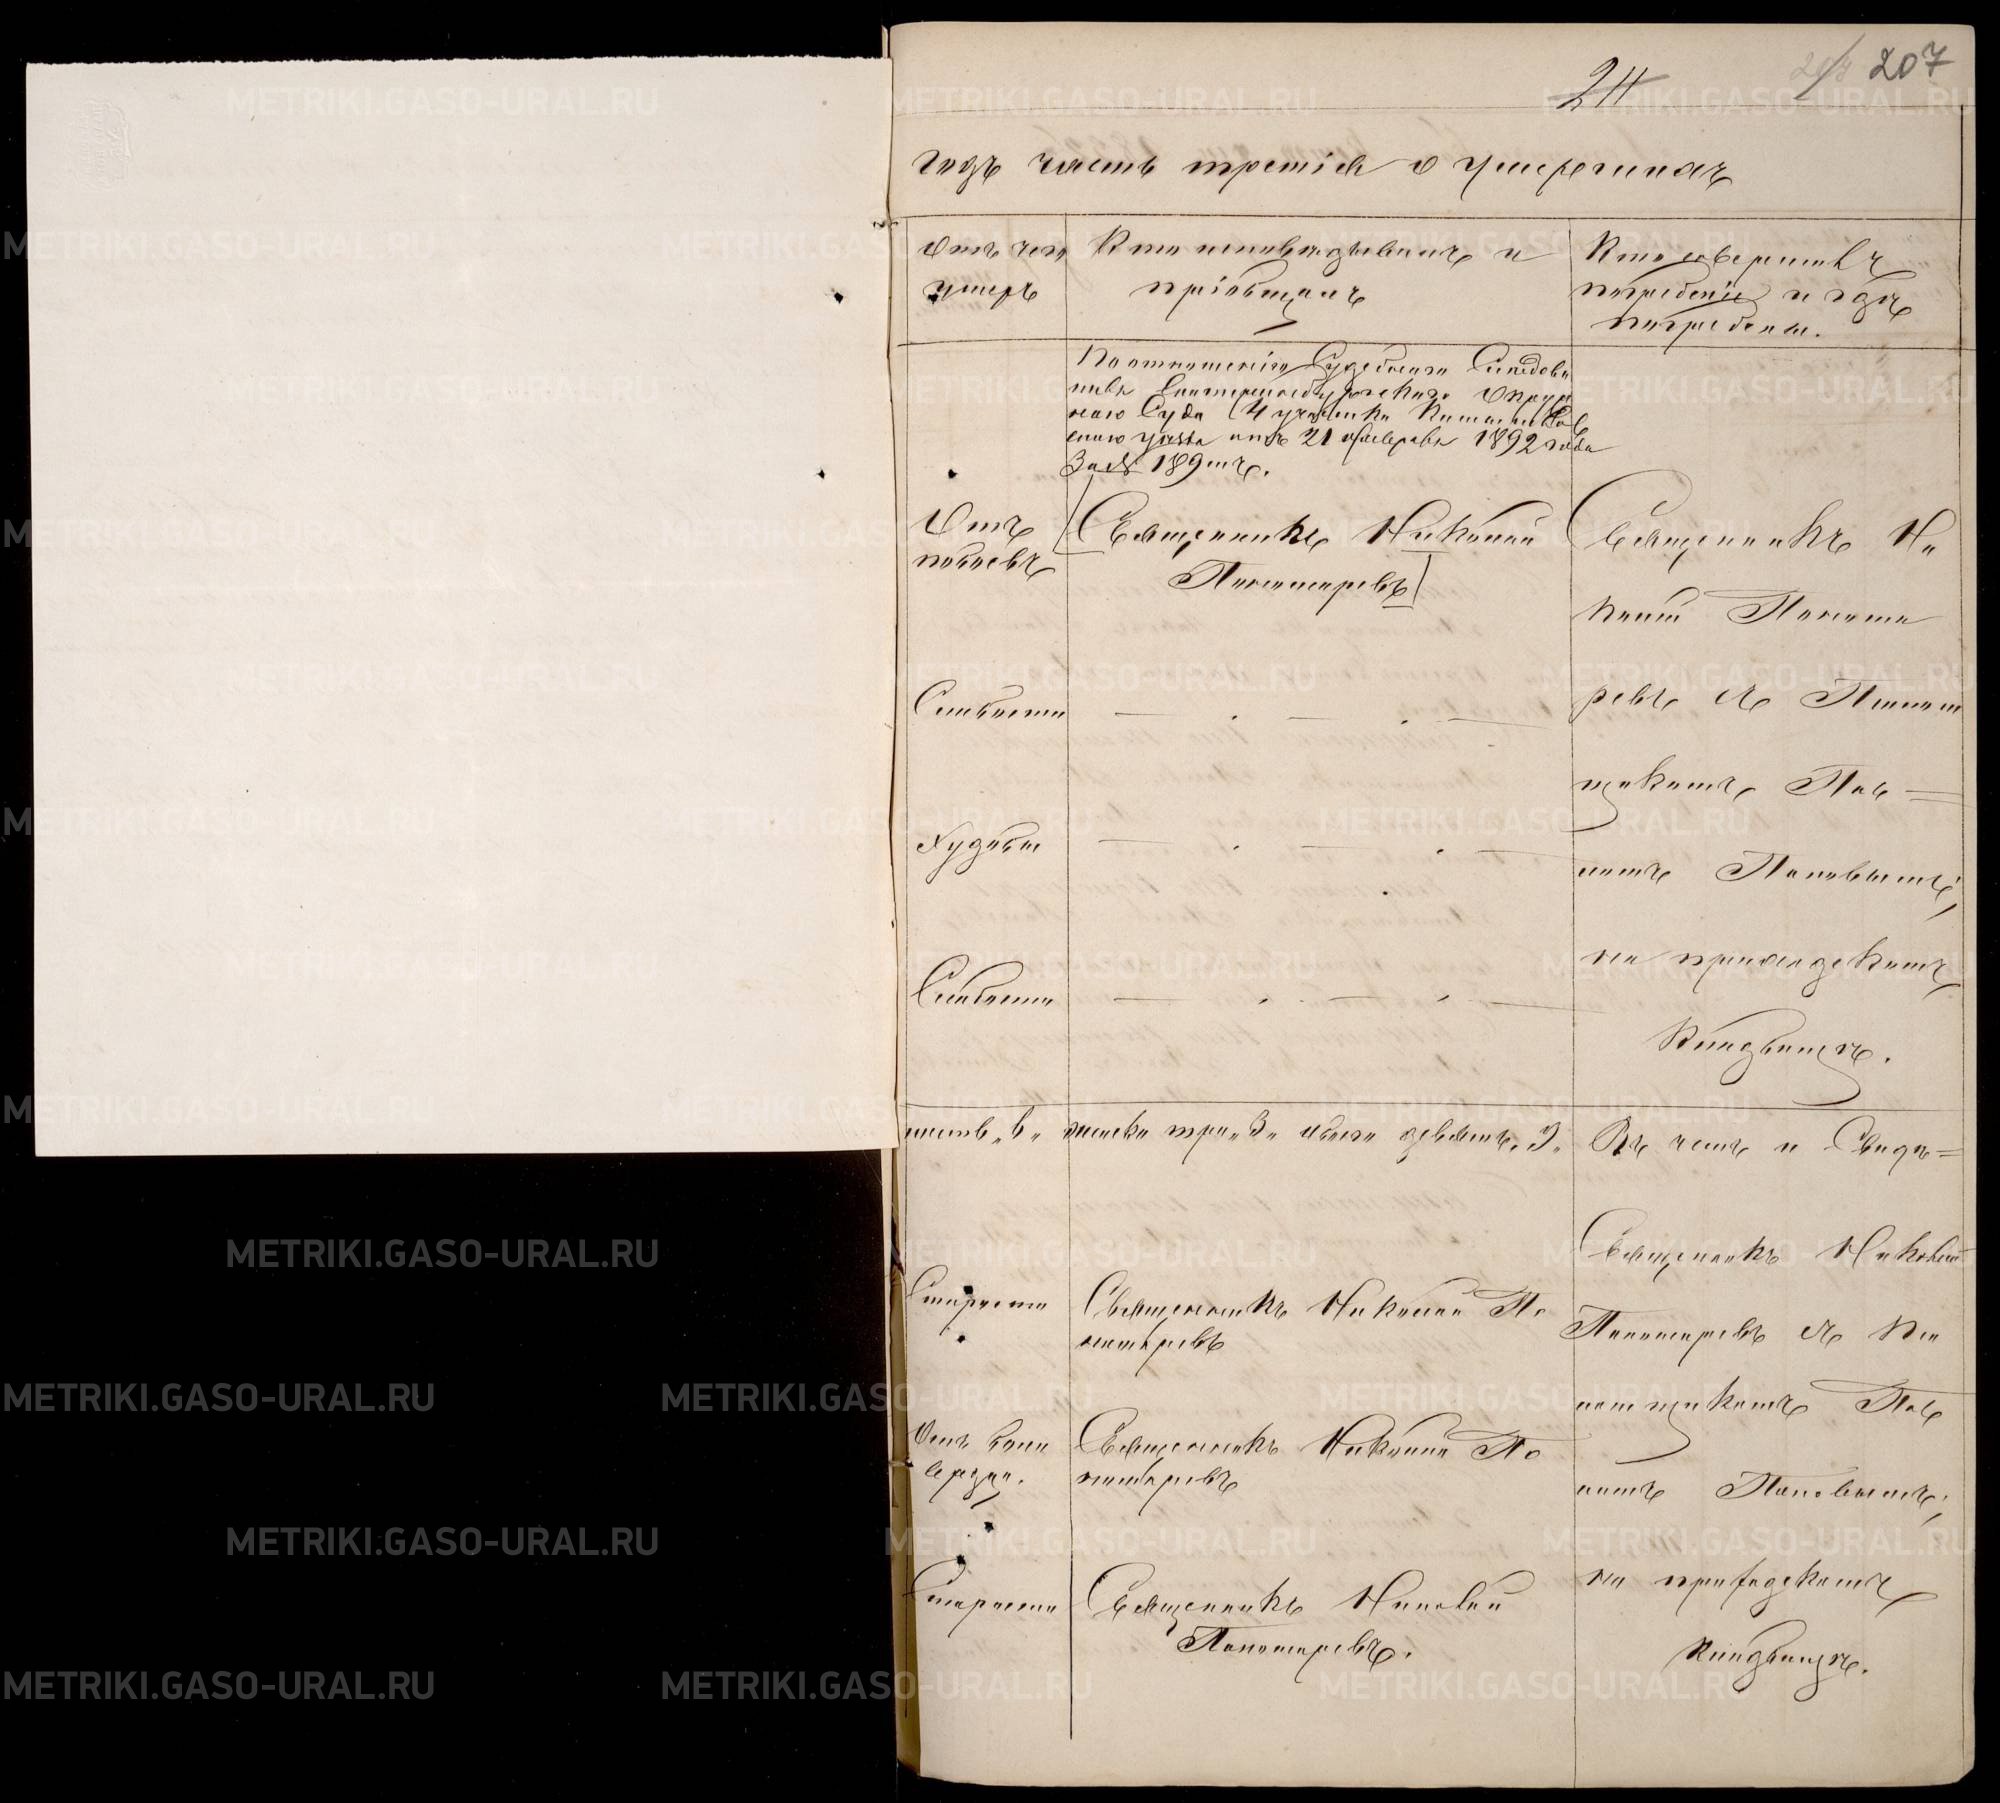 207
211
годъ часть третія о умершихъ
Отъ чего
умеръ
Кто исповѣдывалъ и
пріобщалъ
Кто совершалъ
погребеніе и гдѣ
погребены.
По отношенію Судебнаго Слѣдова
теля Екатеринбургскаго Окруж
наго Суда 4 участка
скаго уѣзда отъ 21 февраля 1892 года
за № 189 мъ.
Отъ
побоевъ
Священникъ Николай
Пономаревъ
Священникъ Ни
колай Понома
ревъ съ Псалом
щикомъ
Поповымъ,
на приходскомъ
кладбищѣ.
Слабости
Худобы
Слабости
женска три „3„ обоего девять „9„
Въ чемъ и Свидѣ=
Старости
Священникъ Николай По
номаревъ
Священникъ Николай
Пономаревъ съ Пса
ломщикомъ
Поповымъ,
на приходскомъ
кладбищѣ.
Священникъ Николай По
номаревъ
Старости
Священникъ Николай
Пономаревъ.
METRIKI.GASO-URAL.RU